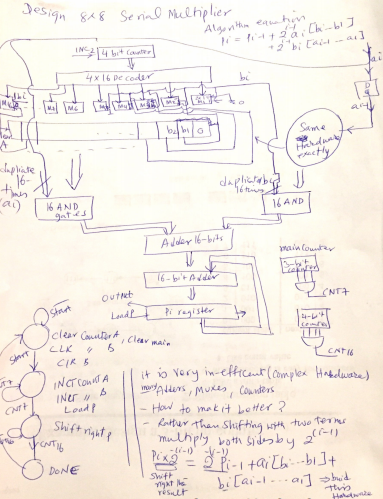 Design 8x8 Serial Multiplier
Algorithm equation
Pi = Pi-1 + 2^i ai [bi...b1]
+ 2^-i bi [ai-1 ... a1]
INC2
4 bit counter
4x16 Decoder
bi
ai
D
ai-1
M8
M7
M6
b2 b1 0
Same
Hardware
exactly
duplicate
16-
times
(ai)
duplicate bi
16 times
16 AND
gates
16 AND
Adder 16-bits
16-bit Adder
OUTNet
LoadP
Pi register
main counter
3-bit
counter
CNT7
4-bit
counter
CNT16
Start
Start
Clear Counter A, Clear main
CLK " B
CLR B
INCr Count A
INCr " B
Load P
CNT7
CNT7
Shift right P
CNT16
DONE
It is very in-efficient (Complex Hardware)
many Adders, Muxes, Counters
- How to make it better?
- Rather than shifting with two terms
multiply both sides by 2^-(i-1)
Pi x 2^-(i-1) = 2^-(i-1) Pi-1 + ai [bi...b1] +
Shift
right the
result
bi [ai-1 ... a1] → build
this
Hardware